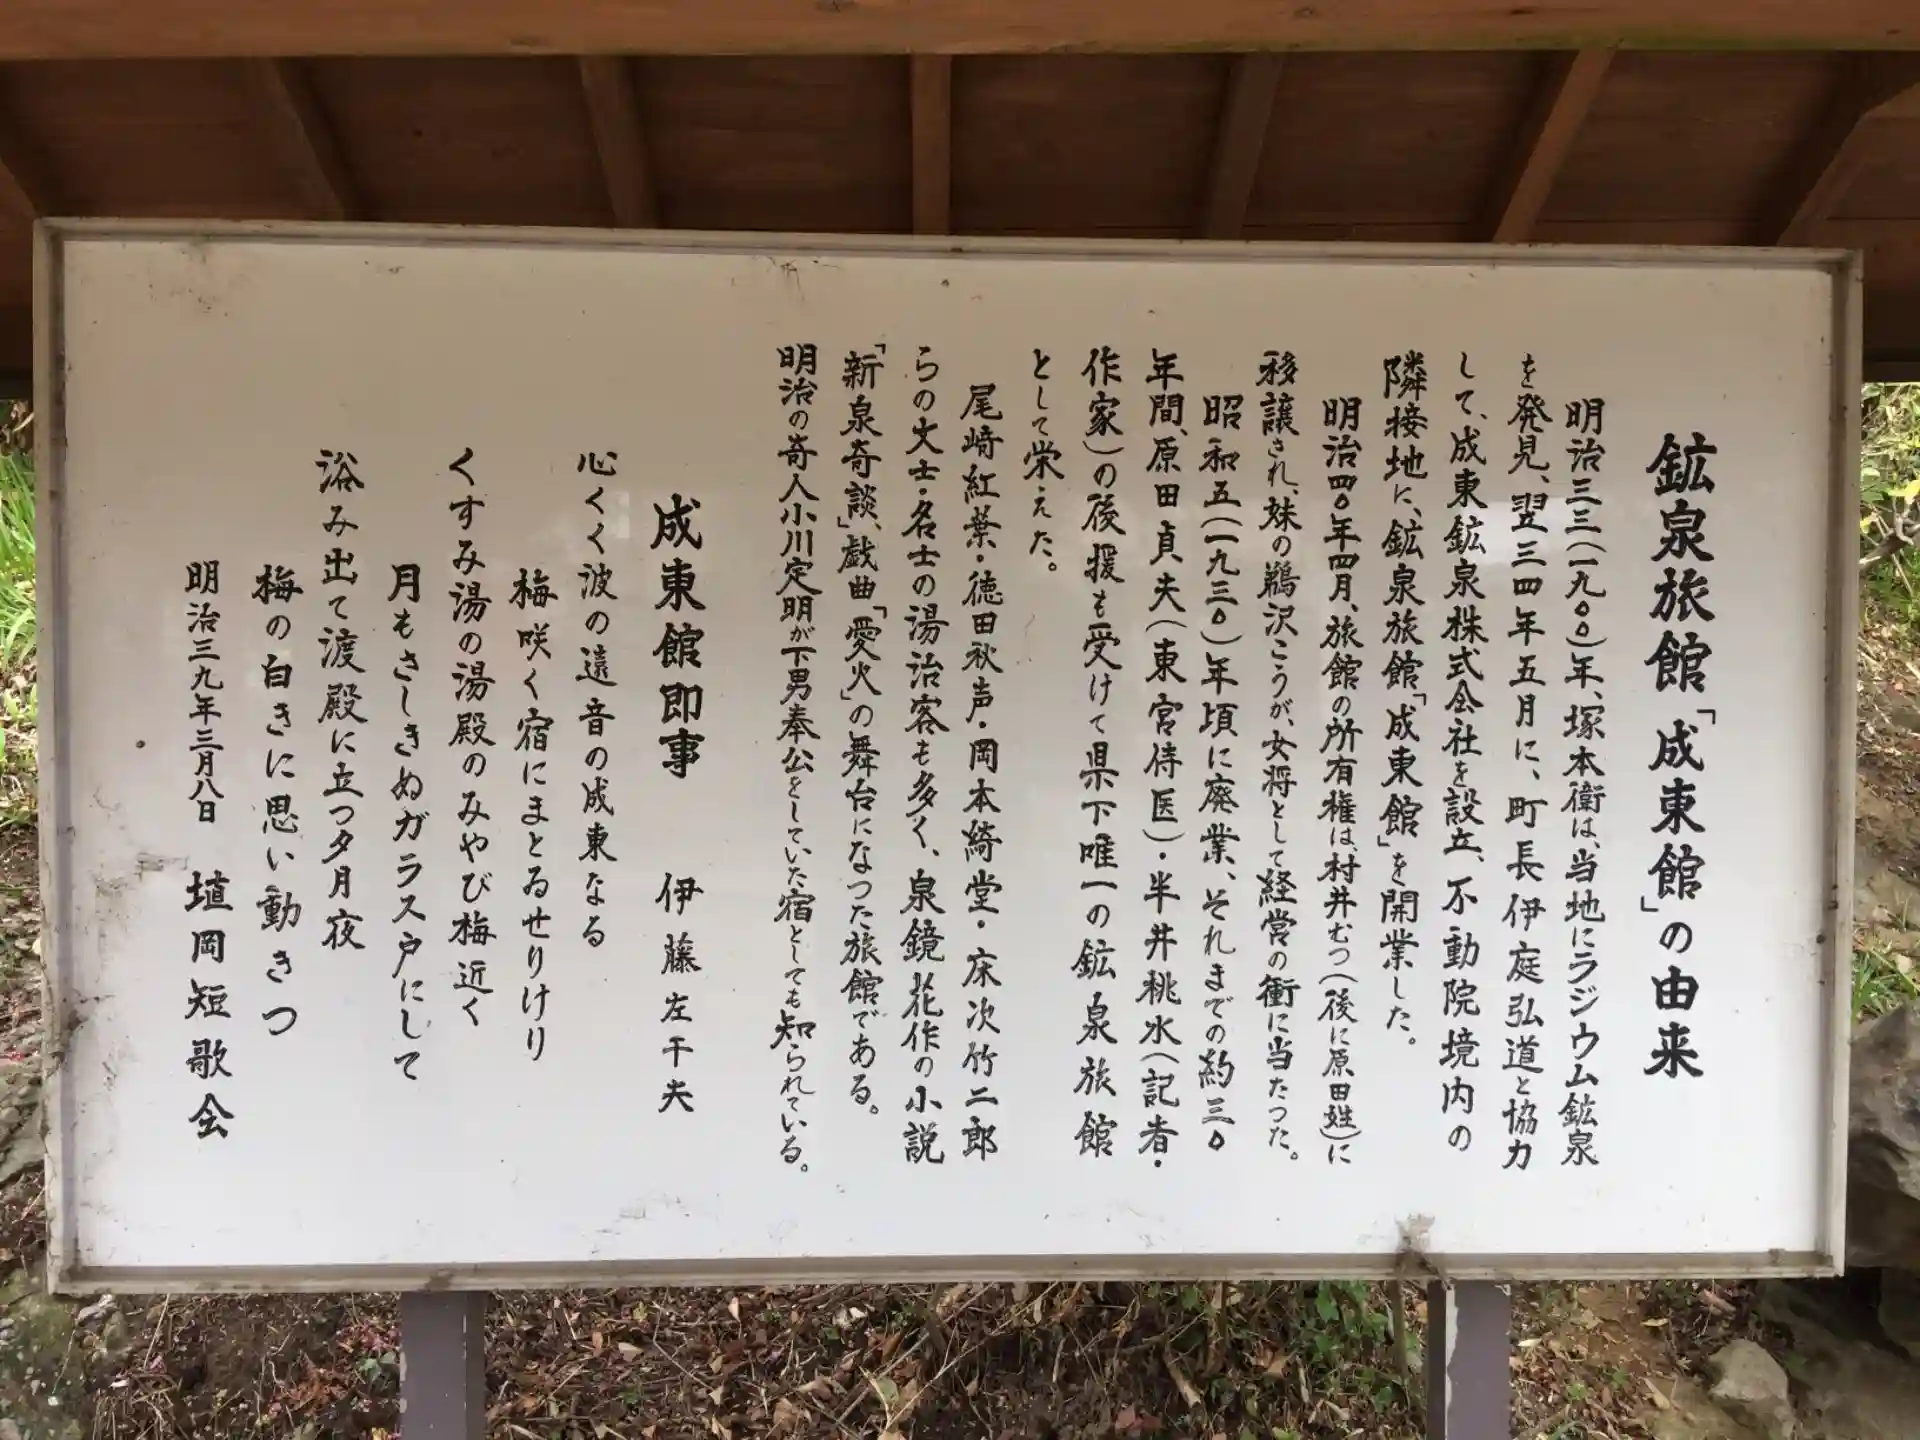 鉱泉旅館「成東館」の由来
明治三三(一九〇〇)年、塚本衛は、当地にラジウム鉱泉
を発見、翌三四年五月に、町長伊庭弘道と協力
して、成東鉱泉株式会社を設立、不動院境内の
隣接地に、鉱泉旅館「成東館」を開業した。
明治四〇年四月、旅館の所有権は、村井むつ(後に原田姓)に
移譲され、妹の鵜沢こうが、女将として経営の衝に当たつた。
昭和五(一九三〇)年頃に廃業、それまでの約三〇
年間、原田貞夫(東宮侍医)・半井桃水(記者・
作家)の後援も受けて県下唯一の鉱泉旅館
として栄えた。
尾崎紅葉・徳田秋声・岡本綺堂・床次竹二郎
らの文士・名士の湯治客も多く、泉鏡花作の小説
「新泉奇談」、戯曲「愛火」の舞台になつた旅館である。
明治の奇人小川定明が下男奉公をしていた宿としても知られている。
成東館即事 伊藤左千夫
心くく波の遠音の成東なる
梅咲く宿にまとゐせりけり
くすみ湯の湯殿のみやび梅近く
月もさしきぬガラス戸にして
浴み出て渡殿に立つ夕月夜
梅の白きに思い動きつ
明治三九年三月八日 埴岡短歌会